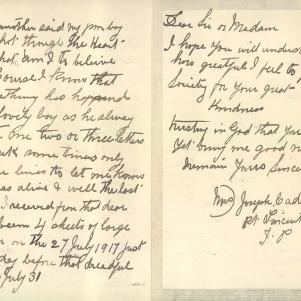 another said my poor boy
shot through the Heart
that am I to believe
course I know that
thing has happened
lovely boy as he always
One two or three letters
week some times only
lines to let me know
was alive & well the last
I received from that dear
been 4 sheets of large
on the 27 July 1917 just
day before that dreadful
July 31
Dear Sir or Madam
I hope you will understand
how grateful I feel to
Society for your great
Kindness
trusting in God that you
yet bring me good n
remain Yours Sincerely
Mrs Joseph Cad
St Vincent